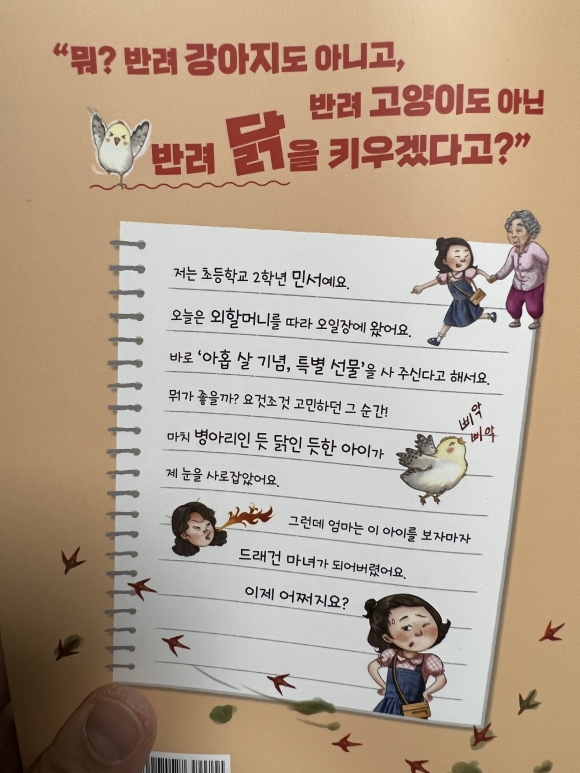 “뭐? 반려 강아지도 아니고,
반려 고양이도 아닌
반려 닭을 키우겠다고?”
저는 초등학교 2학년 민서예요.
오늘은 외할머니를 따라 오일장에 왔어요.
바로 ‘아홉 살 기념, 특별 선물’을 사 주신다고 해서요.
뭐가 좋을까? 요것조것 고민하던 그 순간!
삐약
삐약
마치 병아리인 듯 닭인 듯한 아이가
제 눈을 사로잡았어요.
그런데 엄마는 이 아이를 보자마자
드래건 마녀가 되어버렸어요.
이제 어쩌지요?